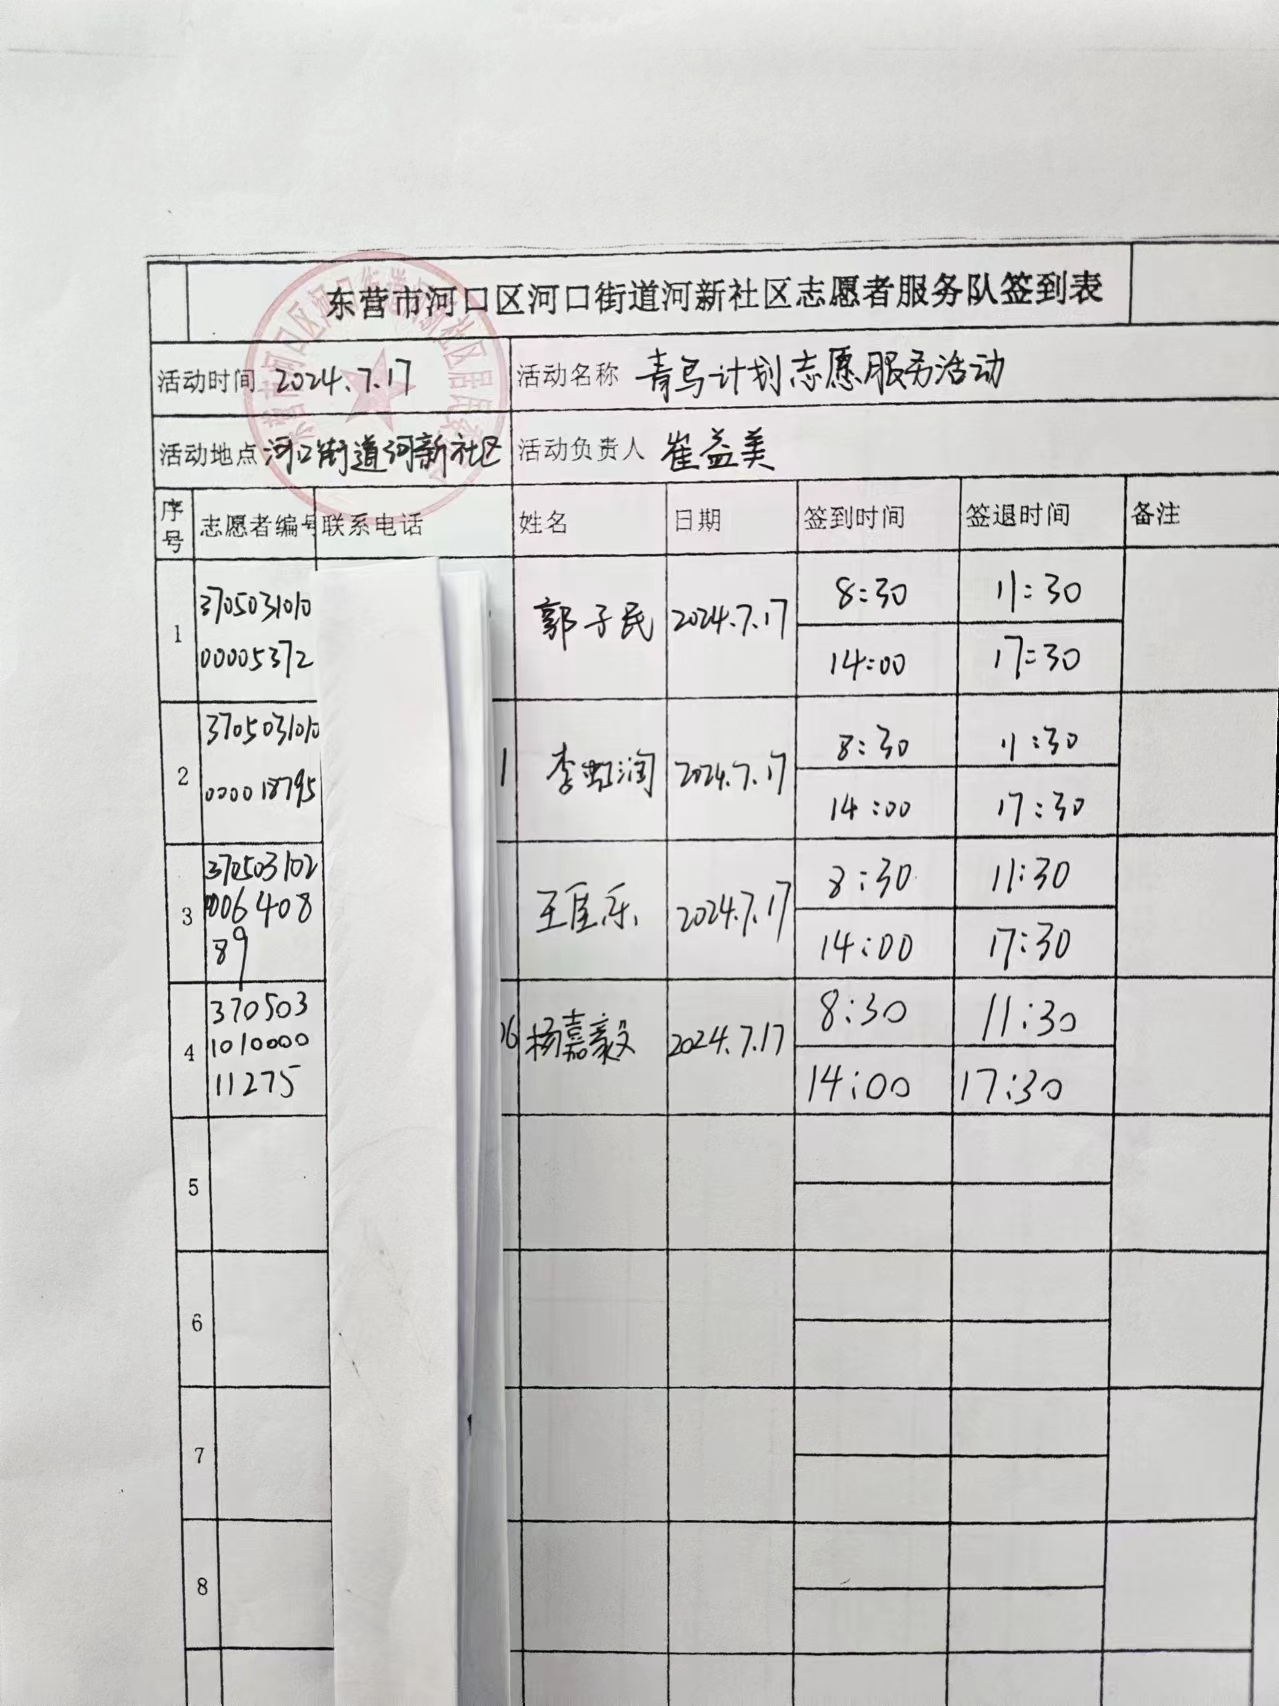 东营市河口区河口街道河新社区志愿者服务队签到表
活动时间 2024.7.17 活动名称 青鸟计划志愿服务活动
活动地点 河口街道河新社区 活动负责人 崔益美
序号 志愿者编号 联系电话 姓名 日期 签到时间 签退时间 备注
1 3705031010 郭子民 2024.7.17 8:30 11:30
00005372 14:00 17:30
2 3705031010 1 李虹润 2024.7.17 8:30 11:30
000018795 14:00 17:30
3 370503102 王佳乐 2024.7.17 8:30 11:30
0006408 14:00 17:30
89
4 370503 06 杨嘉毅 2024.7.17 8:30 11:30
1010000 14:00 17:30
11275
5
6
7
8